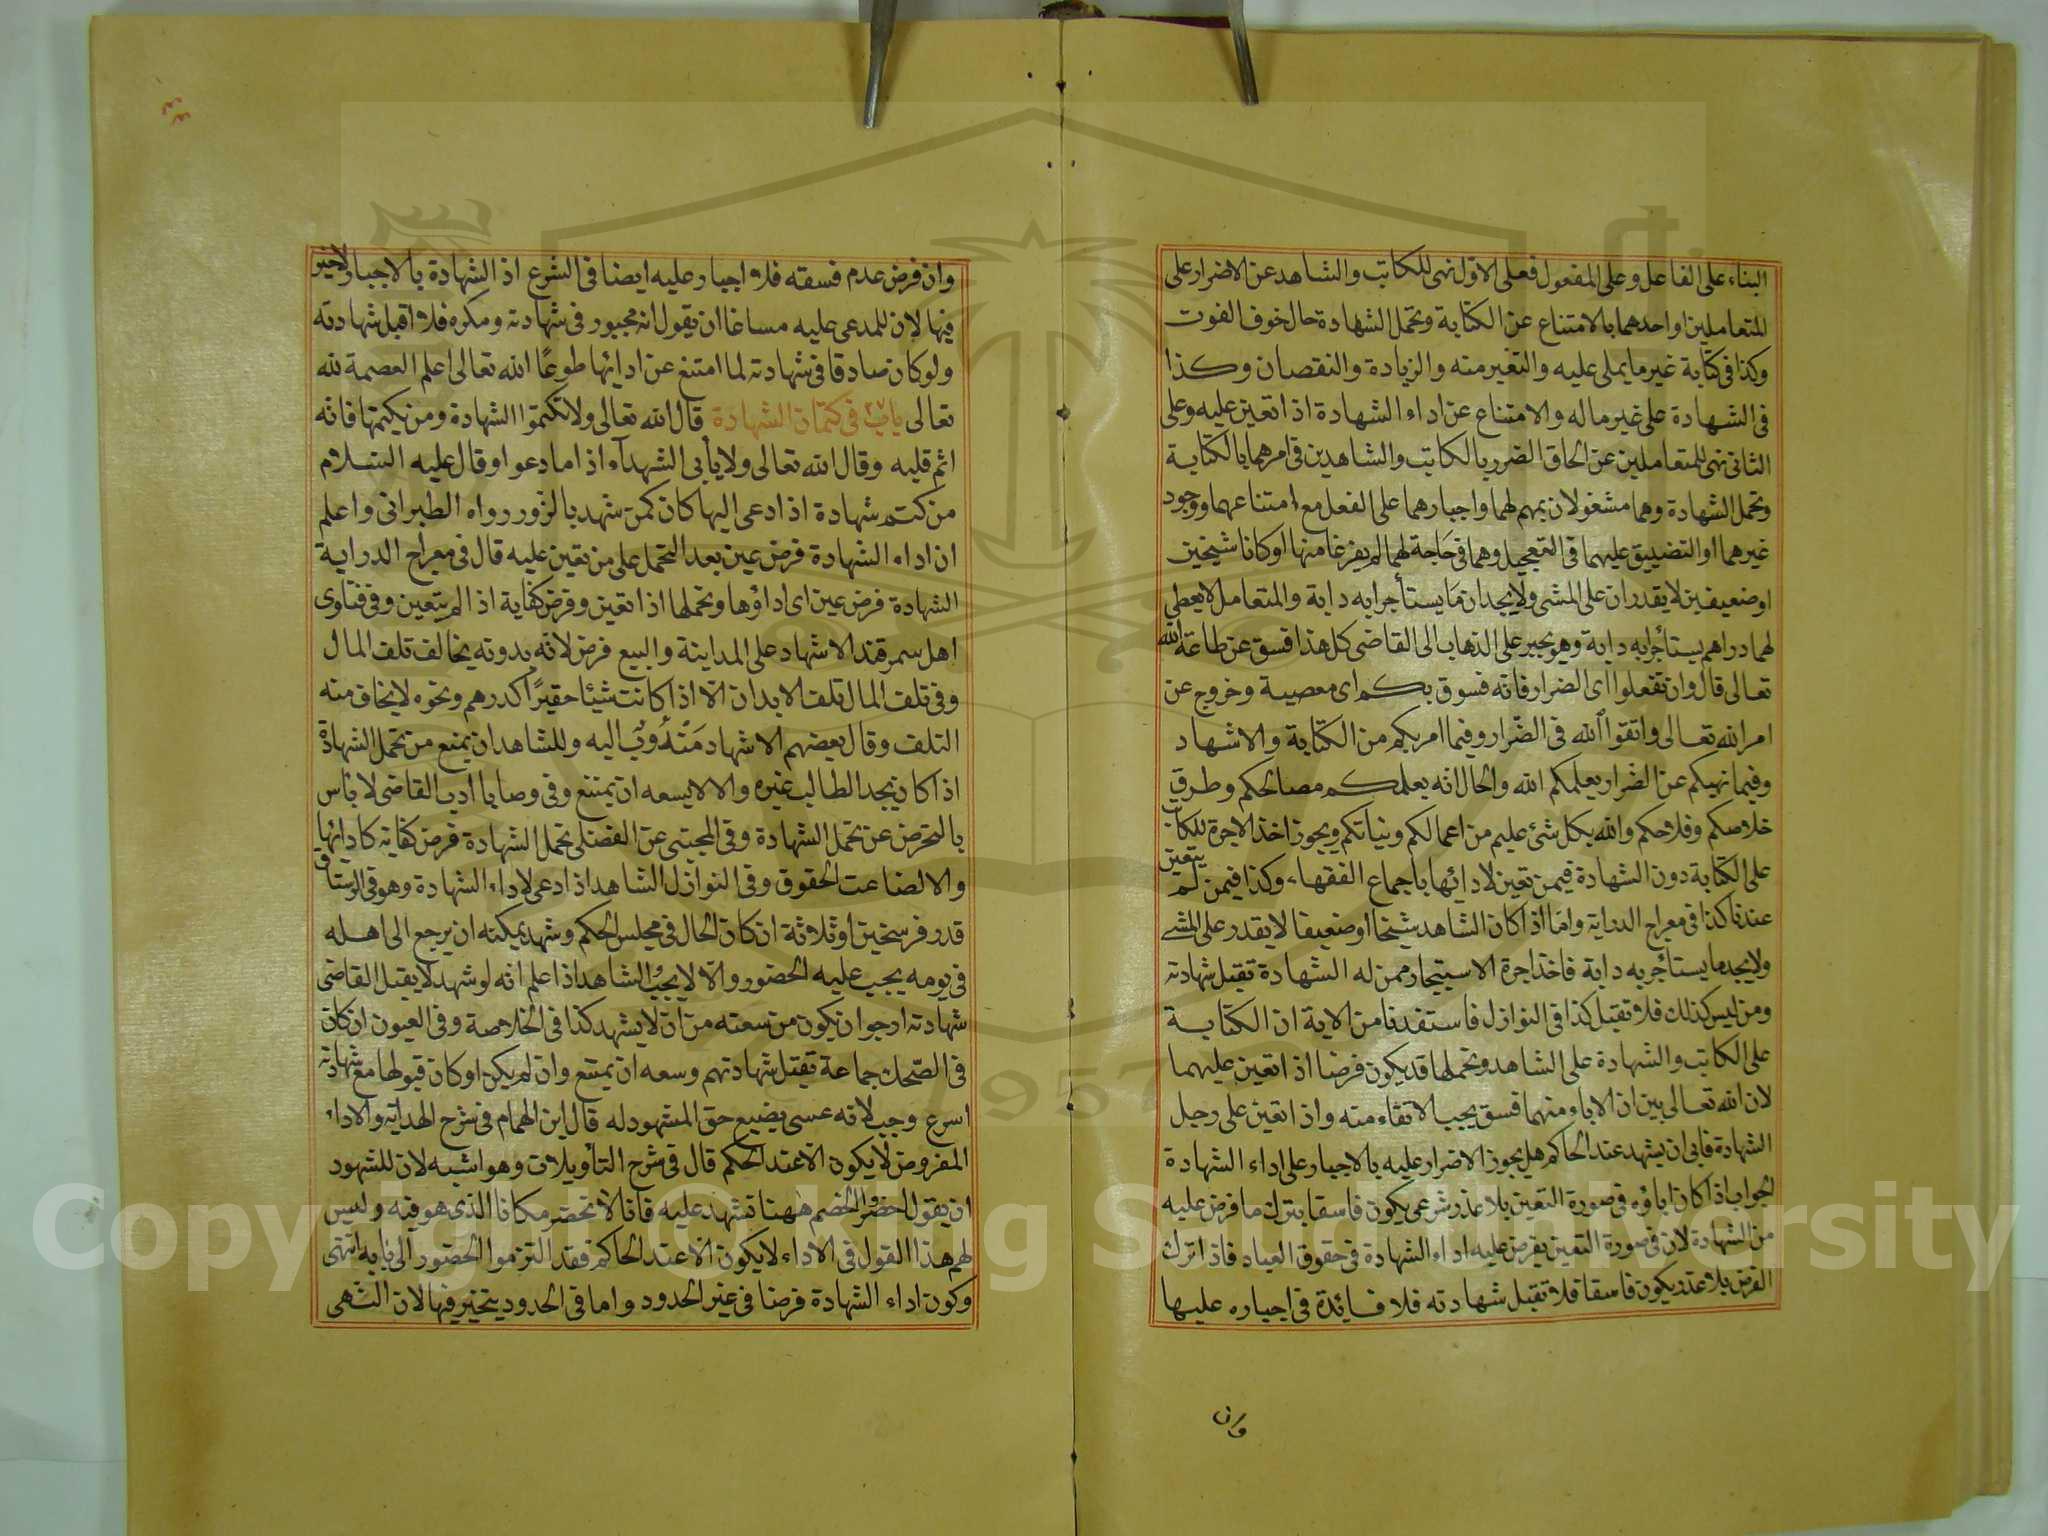 البناء على الفاعل وعلى المفعول فعلى الاول نهى للكاتب والشاهد عن الاضرار على
المتعاملين او احدهما بالامتناع عن الكتابة وتحمل الشهادة حال خوف الفوت
وكذا فى كتابة غير ما يملى عليه والتغير منه والزيادة والنقصان وكذا
فى الشهادة على غير ماله والامتناع عن اداء الشهادة اذا تعين عليه وعلى
الثانى نهى للمتعاملين عن الحاق الضرر بالكاتب والشاهدين فى امرهما بالكتابة
وتحمل الشهادة وهما مشغولان بمهم لهما واجبارهما على الفعل مع امتناعهما ووجود
غيرهما او التضييق عليهما فى التعجيل وهما فى حاجة لهما لم يفرغا منها او كانا شيخين
او ضعيفين لا يقدران على المشى ولا يجدان ما يستأجرا به دابة والمتعامل لا يعطى
لهما دراهم يستأجرا به دابة وهو يجبر على الذهاب الى القاضى كل هذا فسق عن طاعة الله
تعالى قال وان تفعلوا اى الضرار فانه فسوق بكم اى معصية وخروج عن
امر الله تعالى واتقوا الله فى الضرار وفيما امر بكم من الكتابة والاشهاد
وفيما نهيكم عن الضرار يعلمكم الله والحال انه يعلمكم مصالحكم وطرق
خلاصكم وفلاحكم والله بكل شئ عليم من اعمالكم ونياتكم ويجوز اخذ الاجرة للكاتب
على الكتابة دون الشهادة فيمن تعين لادائها باجماع الفقهاء وكذا فيمن لم يتعين
عندنا كذا فى معراج الدراية واما اذا كان الشاهد شيخا او ضعيفا لا يقدر على المشى
ولا يجد ما يستأجر به دابة فاخذ اجرة الاستيجار ممن له الشهادة تقبل شهادته
ومن ليس كذلك فلا تقبل كذا فى النوازل فاستفدنا من الاية ان الكتابة
على الكاتب والشهادة على الشاهد وتحملها قد يكون فرضا اذا تعين عليهما
لان الله تعالى بين ان الاباء منهما فسق يجب الاتقاء منه واذا تعين على رجل
الشهادة فابى ان يشهد عند الحاكم هل يجوز الاضرار عليه بالاجبار على اداء الشهادة
الجواب اذا كان اباؤه فى صورة التعين بلا عذر شرعى يكون فاسقا بترك ما فرض عليه
من الشهادة لان فى صورة التعين يفرض عليه اداء الشهادة فى حقوق العباد فاذا ترك
الفرض بلا عذر يكون فاسقا فلا تقبل شهادته فلا فائدة فى اجباره عليها
وان
٤٤
وان فرض عدم فسقه فلا اجبار عليه ايضا فى الشرع اذ الشهادة بالاجبار لا خير
فيها لان للمدعى عليه مساغا ان يقول انه مجبور فى شهادته ومكره فلا اقبل شهادته
ولو كان صادقا فى شهادته لما امتنع عن ادائها طوعًا الله تعالى اعلم العصمة لله
تعالى باب فى كتمان الشهادة قال الله تعالى ولا تكتموا الشهادة ومن يكتمها فانه
اثم قلبه وقال الله تعالى ولا يأبى الشهدآء اذا ما دعوا وقال عليه السلام
من كتم شهادة اذا دعى اليها كان كمن شهد بالزور رواه الطبرانى واعلم
ان اداء الشهادة فرض عين بعد التحمل على من تعين عليه قال فى معراج الدراية
الشهادة فرض عين اى اداؤها وتحملها اذا تعين وفرض كفاية اذا لم يتعين وفى فتاوى
اهل سمرقند الاشهاد على المداينة والبيع فرض لانه بدونه يخالف تلف المال
وفى تلف المال تلف الابدان الا اذا كانت شيئا حقيرًا كدرهم ونحوه لا يخاف منه
التلف وقال بعضهم الاشهاد مندوب اليه وللشاهد ان يمنع من تحمل الشهادة
اذا كان يجد الطالب غيره والا لا يسعه ان يمتنع وفى وصايا ادب القاضى لا بأس
بالتحرض عن تحمل الشهادة وفى المجتبى عن الفضلى تحمل الشهادة فرض كفاية كادائها
والا لضاعت الحقوق وفى النوازل الشاهد اذا دعى لاداء الشهادة وهو فى الرستاق
قدر فرسخين او ثلاثة ان كان الحال فى مجلس الحكم وشهد يمكنه ان يرجع الى اهله
فى يومه يجب عليه الحضور والا لا يجب الشاهد اذا علم انه لو شهد لا يقبل القاضى
شهادته ارجو ان يكون من سعته من ان لا يشهد كذا فى الخلاصة وفى العيون ان كان
فى الصحك جماعة تقبل شهادتهم وسعه ان يمتنع وان لم يكن او كان قبولها مع شهادته
اسرع وجب لانه عسى يضيع حق المشهود له قال ابن الهمام فى شرح الهداية والاداء
المفروض لا يكون الا عند الحكم قال فى شرح التأويلات وهو اشبه لان للشهود
ان يقول احضر الخصم ههنا تشهد عليه فانا لا نحضر مكانا الذى هو فيه وليس
لهم هذا القول فى الاداء لا يكون الا عند الحاكم فقد التزموا الحضور الى بابه انتهى
وكون اداء الشهادة فرضا فى غير الحدود واما فى الحدود يتخير فيها لان الشهى
Copyright © King Saud University
1957